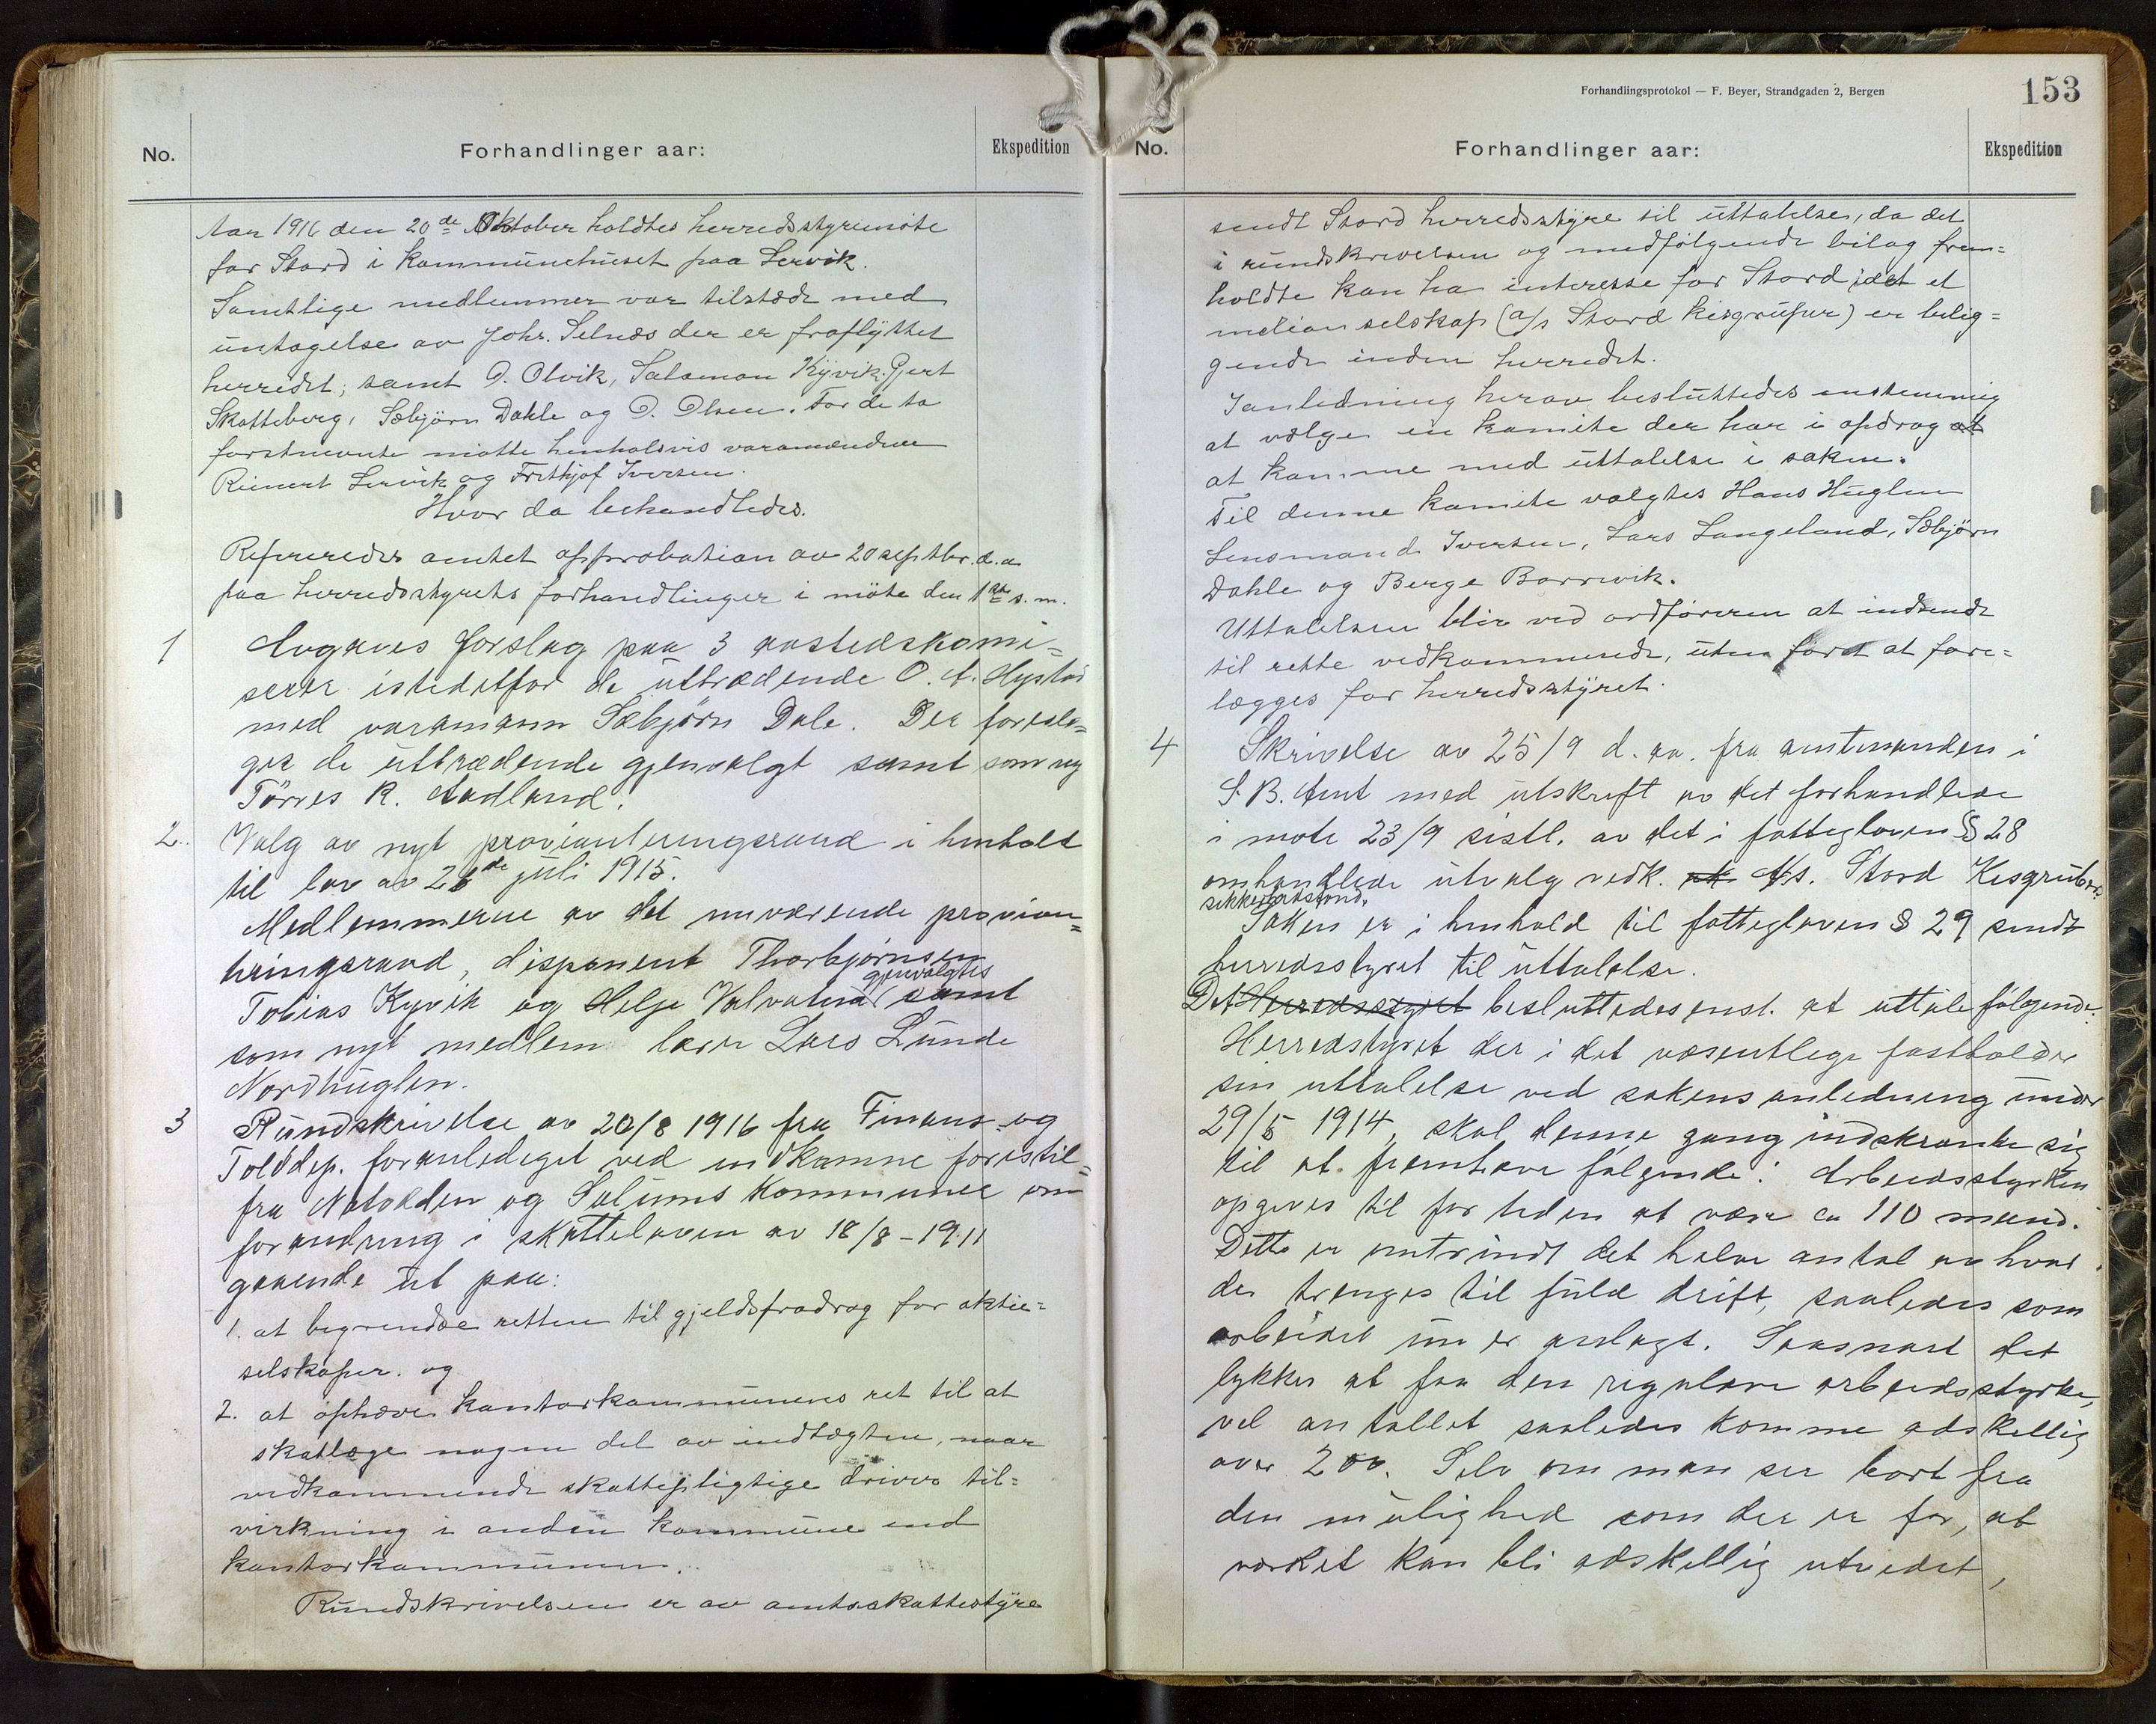 No.
Forhandlinger aar:
Ekspedition
Aar 1916 den 20de Oktober holdtes herredsstyremöte
for Stord i Kommunehuset paa Lervik.
Samtlige medlemmer var tilstæde med
untagelse av Johs. Selnæs der er fraflyttet
herredet, samt O. Olvik, Salamon Kyvik, Gjert
Skatteberg, Sæbjörn Dahle og O. Olsen. For de to
förstnevnte mötte henholsvis varamændene
Reinert Lervik og Frithjof Iversen.
Hvor da behandledes.
Refereredes amtets approbation av 20 septbr. d.a
paa herredsstyrets forhandlinger i möte den 1ste s.m.
1
Avgaves forslag paa 3 aastedskomi=
særer istedetfor de uttrædende O. A. Hystad
med varamann Sæbjörn Dale. Der foreslo=
ges de uttrædende gjenvalgt samt som ny
Törres R. Aadland.
2.
Valg av nyt provianteringsraad i henhold
til lov av 26de juli 1915.
Medlemmerne av det nuværende provian=
teringsraad, disponent Thorbjörnsen
gjenvalgtes
Tobias Kyvik og Helge Valvatna samt
som nyt medlem lærer Lars Lunde
Nordhuglen.
3
Rundskrivelse av 20/8 1916 fra Finans- og
Tolddep. foranlediget ved indkomne forestil=
fra Notodden og Solums Kommuner om
forandring i skatteloven av 18/8 - 1911
gaaende ut paa:
1. at begrændse retten til gjeldsfradrag for aktie=
selskaper. og
2. at ophæve kontorkommunens ret til at
skatlægge nogen del av indtægten, naar
vedkommende skattepligtige driver til=
virkning i anden kommune end
kontorkommunen.
Rundskrivelsen er av amtsskattestyre
Forhandlingsprotokol — F. Beyer, Strandgaden 2, Bergen
153
No.
Forhandlinger aar:
Ekspedition
sendt Stord herredsstyre til uttalelse, da det
i rundskrivelsen og medfölgende bilag frem=
holdte kan ha interesse for Stord idet et
selskap (a/s Stord Kisgruper) er belig=
gende inden herredet.
I anledning herav besluttedes enstemmig
at vælge en komite der har i opdrag at
at komme med uttalelse i saken.
Til denne komite valgtes Hans Huglen
Lensmand Iversen, Lars Langeland, Sæbjörn
Dahle og Berge Borrevik.
Uttalelsen blir ved ordföreren at indsende
til rette vedkommende, uten förat at fore=
lægges for herredsstyret.
4
Skrivelse av 25/9 d. aa. fra amtmanden i
S. B. Amt med utskrift av det forhandlede
i möte 23/9 sistl. av det i fattigloven § 28
omhandlede utvalg vedk. A/s. Stord Kisgrubers
sikkerhetsfond.
Saken er i henhold til fattigloven § 29 sendt
herredsstyret til uttalelse.
Det Herredsstyret besluttedes enst. at uttale fölgende:
Herredstyret der i det væsentlige fastholder
sin uttalelse ved sakens anledning under
29/5 1914, skal denne gang indskrænke sig
til at fremhæve fölgende: Arbeidsstyrken
opgives til for tiden at være ca 110 mand.
Dette er omtrindt det halve antal av hvad
der trænges til fuld drift, saaledes som
arbeidet nu er anlagt. Saasnart det
lykkes at faa den regulære arbeidsstyrke,
vil antallet saaledes komme adskillig
over 200. Selv om man ser bort fra
den mulighed som der er for, at
verket kan bli adskillig utvidet,